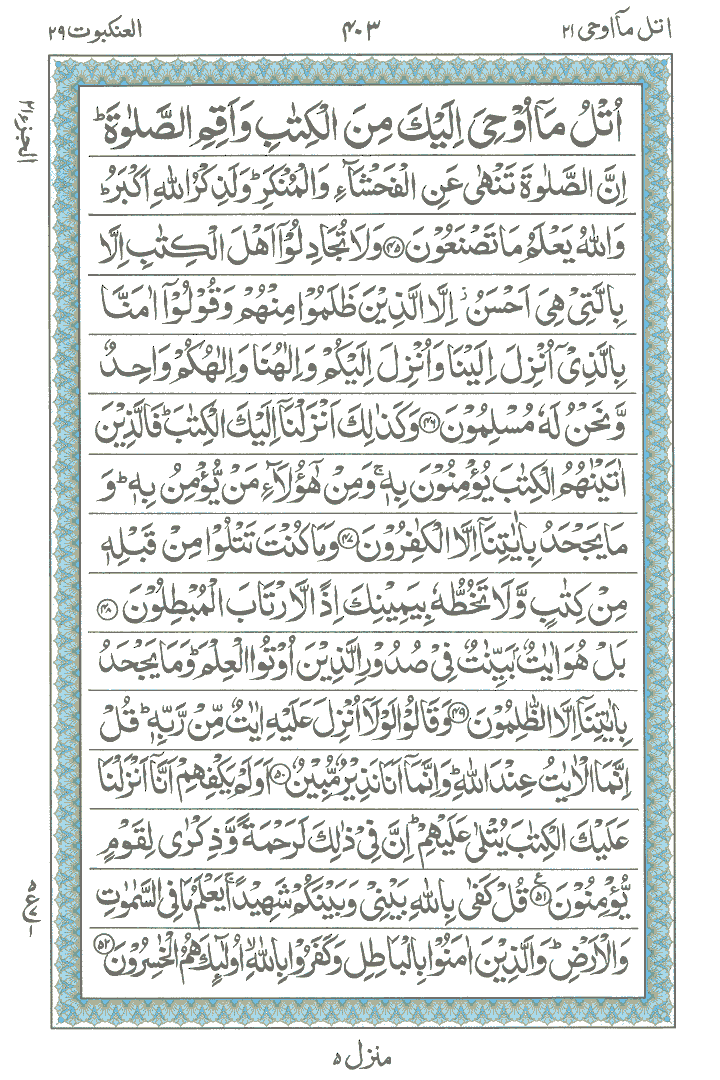 اتل مآاوحی ۲۱
۴۰۳
العنکبوت ۲۹
الجزء ۲۱
اُتْلُ مَآ اُوْحِیَ اِلَیْكَ مِنَ الْكِتٰبِ وَاَقِمِ الصَّلٰوةَ ؕ
اِنَّ الصَّلٰوةَ تَنْهٰی عَنِ الْفَحْشَآءِ وَالْمُنْكَرِ ؕ وَلَذِكْرُ اللّٰهِ اَكْبَرُ ؕ
وَاللّٰهُ یَعْلَمُ مَا تَصْنَعُوْنَ ۴۵ وَلَا تُجَادِلُوْۤا اَهْلَ الْكِتٰبِ اِلَّا
بِالَّتِیْ هِیَ اَحْسَنُ ۖ اِلَّا الَّذِیْنَ ظَلَمُوْا مِنْهُمْ وَقُوْلُوْۤا اٰمَنَّا
بِالَّذِیْۤ اُنْزِلَ اِلَیْنَا وَاُنْزِلَ اِلَیْكُمْ وَاِلٰهُنَا وَاِلٰهُكُمْ وَاحِدٌ
وَّنَحْنُ لَهٗ مُسْلِمُوْنَ ۴۶ وَكَذٰلِكَ اَنْزَلْنَاۤ اِلَیْكَ الْكِتٰبَ ؕ فَالَّذِیْنَ
اٰتَیْنٰهُمُ الْكِتٰبَ یُؤْمِنُوْنَ بِهٖ ۚ وَمِنْ هٰۤؤُلَآءِ مَنْ یُّؤْمِنُ بِهٖ ؕ وَ
مَا یَجْحَدُ بِاٰیٰتِنَاۤ اِلَّا الْكٰفِرُوْنَ ۴۷ وَمَا كُنْتَ تَتْلُوْا مِنْ قَبْلِهٖ
مِنْ كِتٰبٍ وَّلَا تَخُطُّهٗ بِیَمِیْنِكَ اِذًا لَّارْتَابَ الْمُبْطِلُوْنَ ۴۸
بَلْ هُوَ اٰیٰتٌۢ بَیِّنٰتٌ فِیْ صُدُوْرِ الَّذِیْنَ اُوْتُوا الْعِلْمَ ؕ وَمَا یَجْحَدُ
بِاٰیٰتِنَاۤ اِلَّا الظّٰلِمُوْنَ ۴۹ وَقَالُوْا لَوْلَاۤ اُنْزِلَ عَلَیْهِ اٰیٰتٌ مِّنْ رَّبِّهٖ ؕ قُلْ
اِنَّمَا الْاٰیٰتُ عِنْدَ اللّٰهِ ؕ وَاِنَّمَاۤ اَنَا نَذِیْرٌ مُّبِیْنٌ ۵۰ اَوَلَمْ یَكْفِهِمْ اَنَّاۤ اَنْزَلْنَا
عَلَیْكَ الْكِتٰبَ یُتْلٰی عَلَیْهِمْ ؕ اِنَّ فِیْ ذٰلِكَ لَرَحْمَةً وَّذِكْرٰی لِقَوْمٍ
یُّؤْمِنُوْنَ ۵۱ قُلْ كَفٰی بِاللّٰهِ بَیْنِیْ وَبَیْنَكُمْ شَهِیْدًا ۚ یَعْلَمُ مَا فِی السَّمٰوٰتِ
وَالْاَرْضِ ؕ وَالَّذِیْنَ اٰمَنُوْا بِالْبَاطِلِ وَكَفَرُوْا بِاللّٰهِ ۙ اُولٰٓئِكَ هُمُ الْخٰسِرُوْنَ ۵۲
منزل ۵